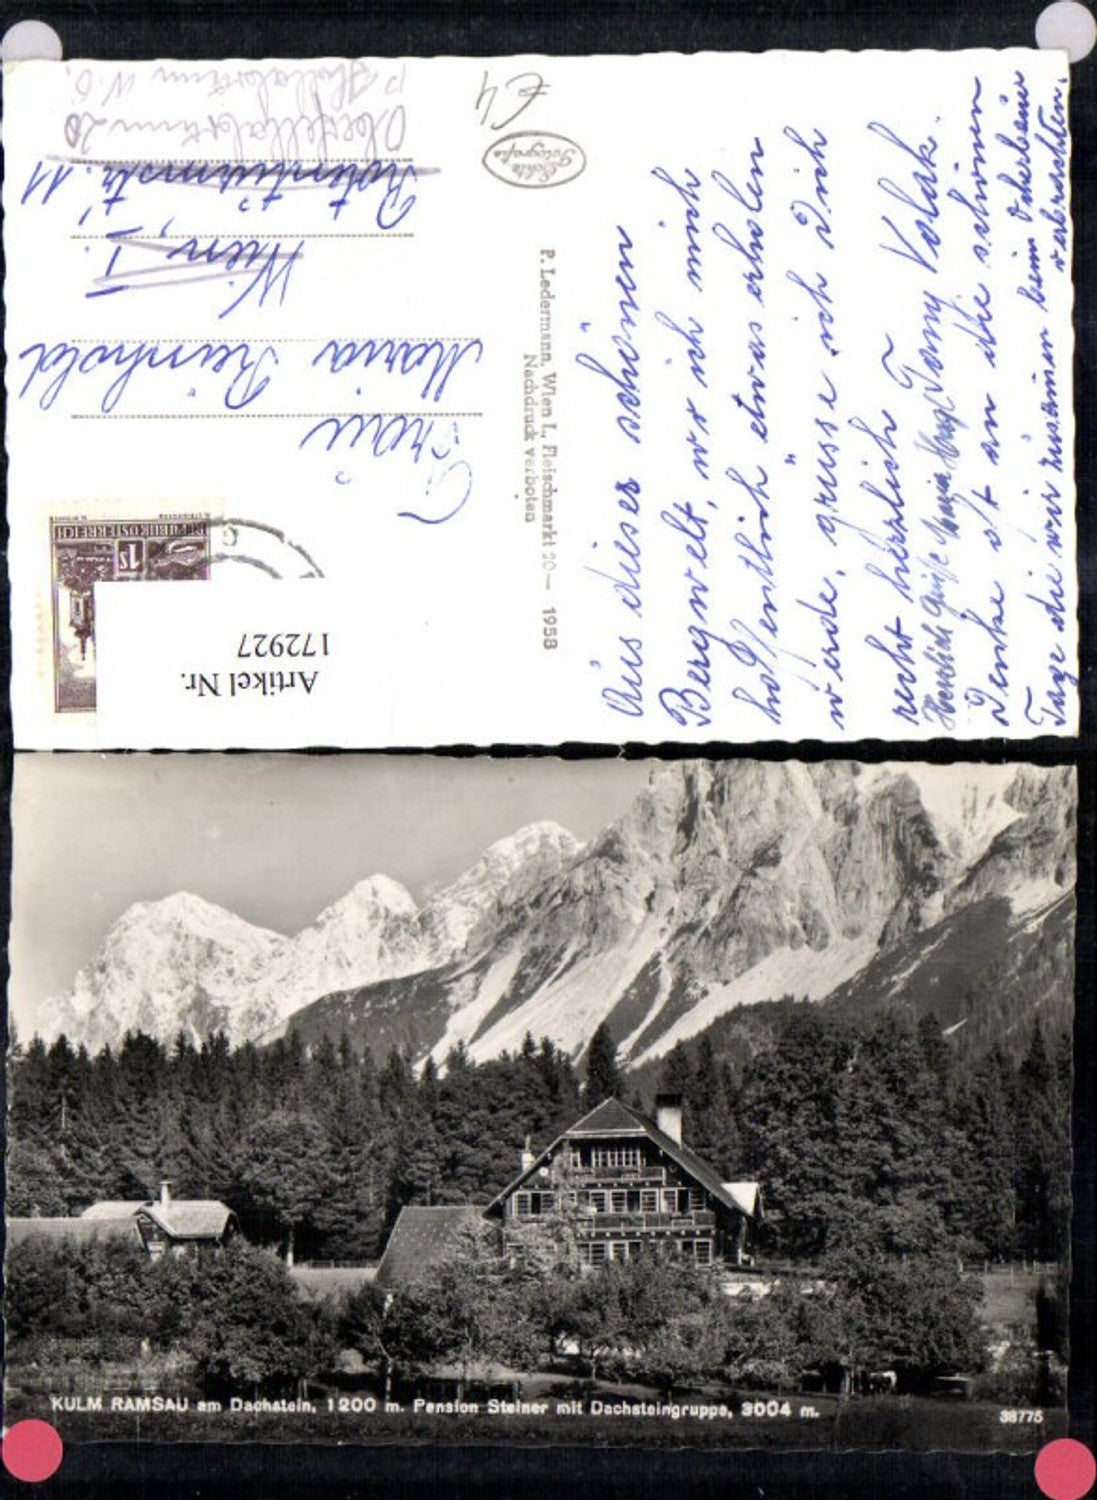 Aus dieser schönen
Bergwelt, wo ich mich
hoffentlich etwas erholen
werde, grüsse ich Dich
recht herzlich Tony Kolak.
Herzlich Grüße Maria
Denke oft an die schönen
Tage die wir zusammen beim Oberleiner
verbrachten.
P. Ledermann, Wien I., Fleischmarkt 20 — 1958
Nachdruck verboten
Echte
Fotografie
€4
Frau
Maria Reinhold
Wien, I.
Rotenturmstr. 11
Oberfellabrunn 20
P. Hollabrunn N.Ö.
REPUBLIK ÖSTERREICH
1 S
Artikel Nr.
172927
KULM RAMSAU am Dachstein, 1200 m. Pension Steiner mit Dachsteingruppe, 3004 m.
38775